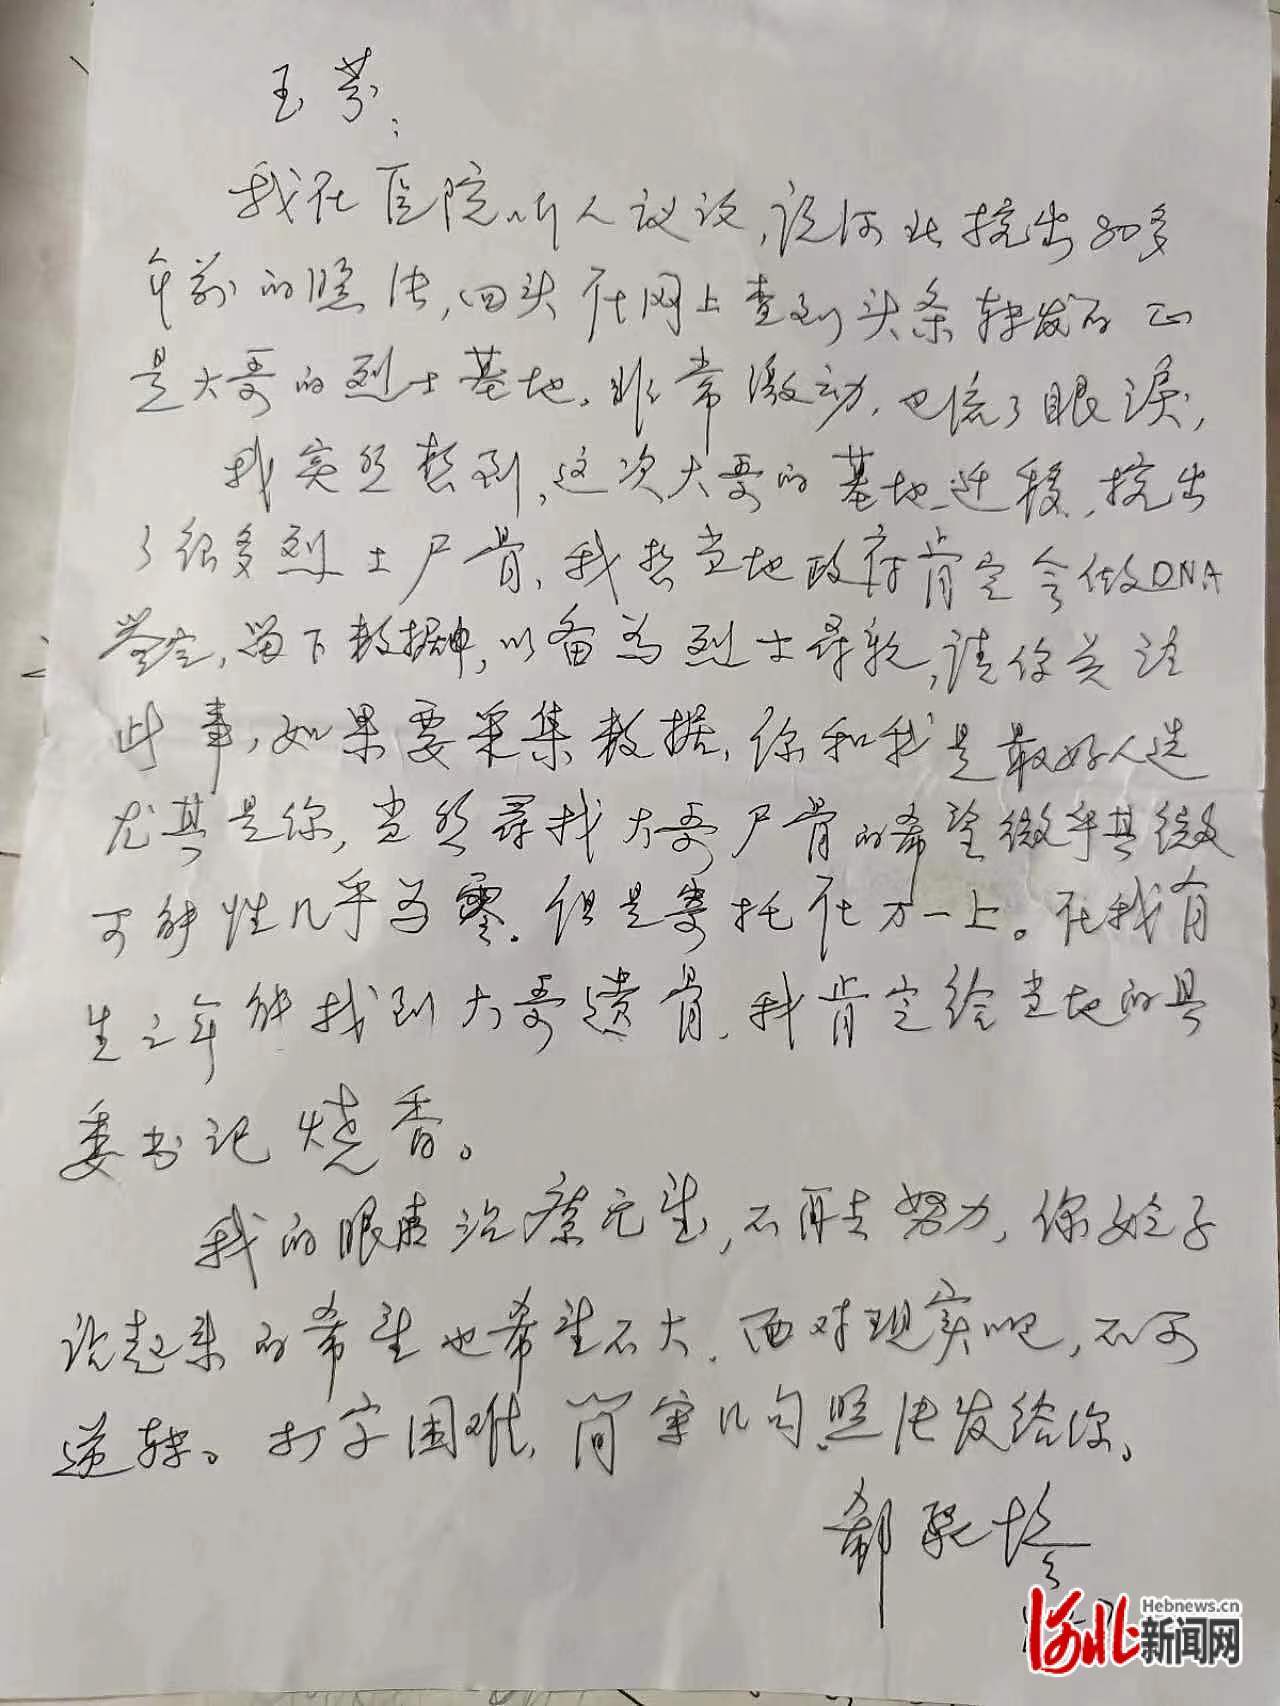 玉芬:
我在医院听人议议,说河北挖出80多
年前的照片,回头在网上查到头条转发的正
是大哥的烈士墓地。非常激动,也流了眼泪,
我突然想到,这次大哥的墓地迁移,挖出
了很多烈士尸骨,我想当地政府肯定会做DNA
鉴定,留下数据,以备为烈士寻亲,请你关注
此事,如果要采集数据,你和我是最好人选
尤其是你,当然寻找大哥尸骨的希望微乎其微
可能性几乎为零。但是寄托在万一上。在我有
生之年能找到大哥遗骨,我肯定给当地的县
委书记烧香。
我的眼睛治疗无望,不再去努力,你嫂子
站起来的希望也希望不大,面对现实吧,不可
逆转。打字困难,简单几句,照片发给你。
郗
河北新闻网
Hebnews.cn